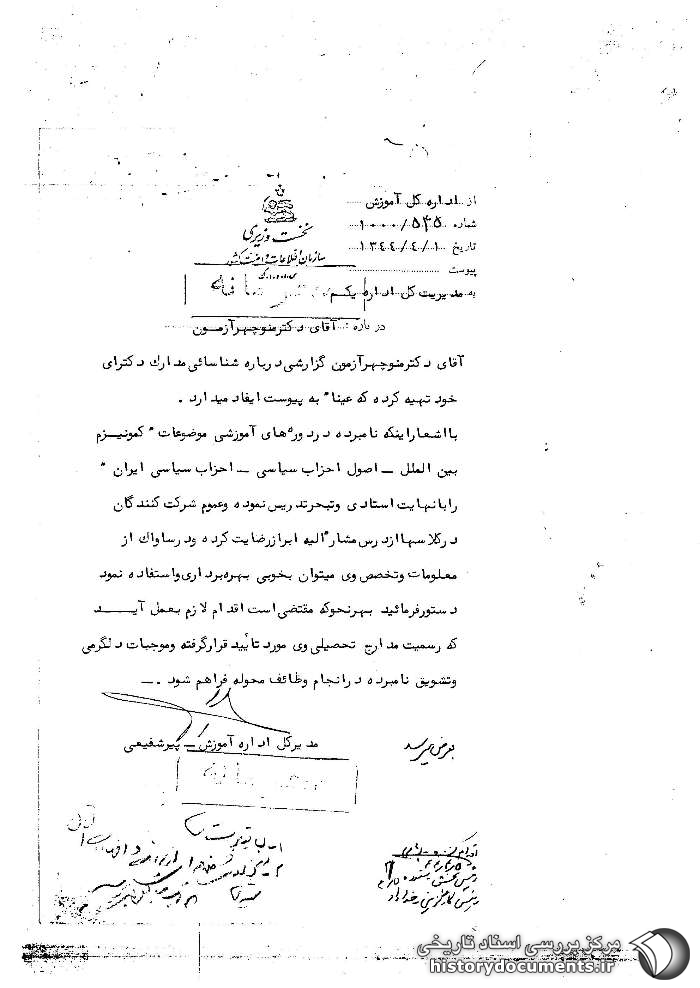 از اداره کل آموزش
شماره ۱۰۰۰/۵۴۵
تاریخ ۱۳۴۴/۴/۱
پیوست
نخست وزیری
سازمان اطلاعات و امنیت کشور
س.ا.و.ا.ک
به مدیریت کل اداره یکم
درباره : آقای دکتر منوچهر آزمون
آقای دکتر منوچهر آزمون گزارشی درباره شناسائی مدارك دکترای
خود تهیه کرده که عینا" به پیوست ایفاد میدارد .
با اشعار اینکه نامبرده در دوره های آموزشی موضوعات " کمونیزم
بین الملل ـ اصول احزاب سیاسی ـ احزاب سیاسی ایران "
را با نهایت استادی و تبحر تدریس نموده و عموم شرکت کنندگان
در کلاسها از درس مشار" الیه ابراز رضایت کرده و در ساواك از
معلومات و تخصص وی میتوان بخوبی بهره برداری و استفاده نمود
دستور فرمائید بهر نحو که مقتضی است اقدام لازم بعمل آیـــد
که رسمیت مدارج تحصیلی وی مورد تأیید قرار گرفته و موجبات دلگرمی
و تشویق نامبرده در انجام وظائف محوله فراهم شود .ـ
مدیر کل اداره آموزش ـ پیرشفیعی
بعرض میرسد
مرکز بررسی اسناد تاریخی
historydocuments.ir